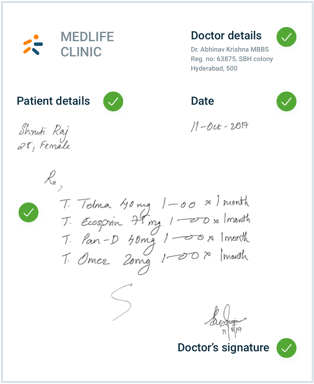 MEDLIFE
CLINIC
Doctor details
Dr. Abhinav Krishna MBBS
Reg. no: 63875, SBH colony
Hyderabad, 500
Patient details
Date
Shruti Raj
11-Oct-2017
25, Female
Rx,
T. Telma 40mg 1-00 x 1 month
T. Ecosprin 75mg 1-00 x 1 month
T. Pan-D 40mg 1-00 x 1 month
T. Omez 20mg 1-00 x 1 month
Doctor's signature